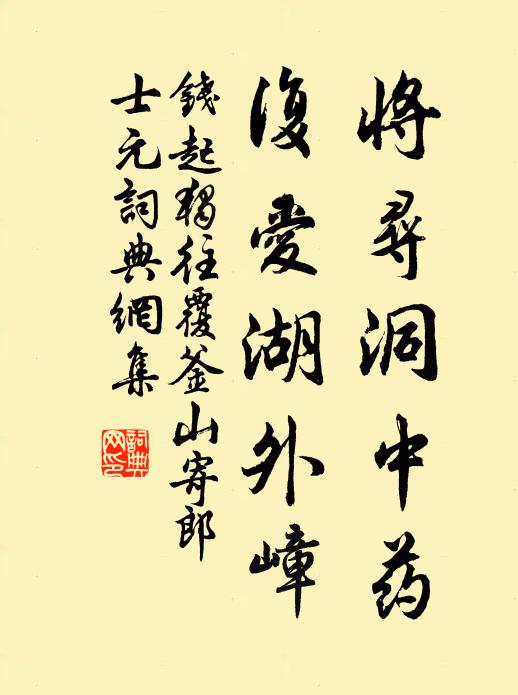 将尋洞中药
復愛湖外嶂
錢起獨往覆釜山寄郎
士元詞典網集
詞典网印